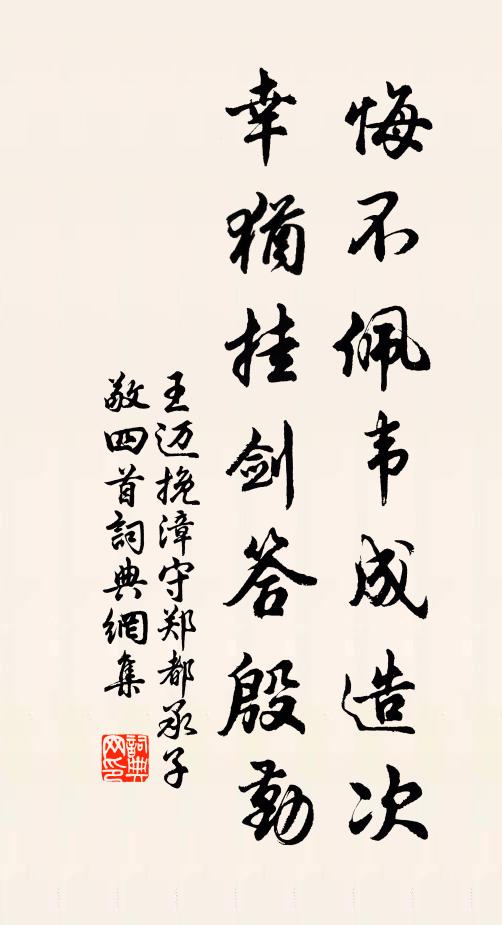 悔不佩韦成造次
幸猶挂劍答殷勤
王迈挽漳守郑都承子
敬四首詞典網集
詞典網印